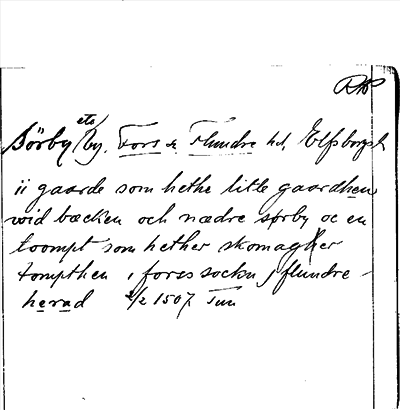 Sörby ets/by, Fors sn Flundre hd, Elfsborgs l
ii gaarde som hethe litle gaardhen
wid bæcken och nædre sørby oc en
toompt som hether skomagher
tompthen i fores sockn j flundre-
herad 2/2 1507 Tun